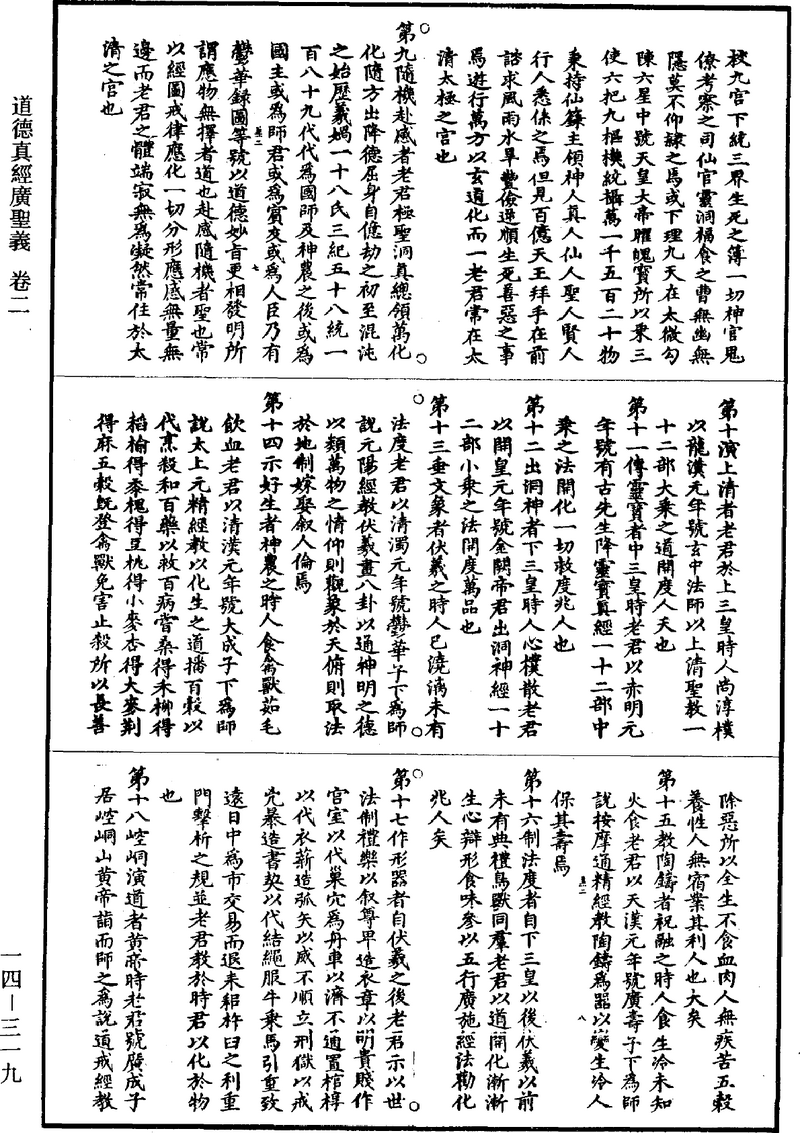 道德真經廣聖義　卷二
一四—三一九
校九宫下統三界生死之簿一切神官鬼
僚考察之司仙官靈洞福食之曹無幽無
隱莫不仰隸之焉或下理九天在太微勾
陳六星中號天皇大帝曜魄寶所以乘三
使六把九樞模紘攝萬一千五百二十物
秉持仙籙主領神人真人仙人聖人賢人
行人悉係之焉但見百億天王拜手在前
諮求風雨水旱豐儉逆順生死善惡之事
焉遊行萬方以玄道化而一老君常在太
清太極之宫也
第九隨機赴感者老君極聖洞真總領萬化
化隨方出降德屈身自億劫之初至混沌
之始歷羲媧一十八氏三紀五十八統一
百八十九代代為國師及神農之後或為
國主或為師君或為賓友或為人臣乃有
鬱華録圖等號以道德妙旨更相發明所
謂應物無擇者道也赴感隨機者聖也常
以經圖戒律應化一切分形應感無量無
邊而老君之體端寂無為凝然常住於太
清之宫也
第十演上清者老君於上三皇時人尚淳樸
以龍漢元年號玄中法師以上清聖教一
十二部大乘之道開度人天也
第十一傳靈寶者中三皇時老君以赤明元
年號有古先生降靈寶真經一十二部中
乘之法開化一切救度兆人也
第十二出洞神者下三皇時人心樸散老君
以開皇元年號金闕帝君出洞神經一十
二部小乘之法開度萬品也
第十三垂文象者伏羲之時人已澆漓未有
法度老君以清濁元年號鬱華子下為師
説元陽經教伏羲畫八卦以通神明之德
以類萬物之情仰則觀象於天俯則取法
於地制嫁娶叙人倫焉
第十四示好生者神農之時人食禽獸茹毛
飲血老君以清漢元年號大成子下為師
説太上元精經教以化生之道播百穀以
代烹殺和百藥以救百病嘗桑得禾柳得
稻榆得黍槐得豆桃得小麥杏得大麥荆
得麻五穀既登禽獸免害止殺所以長善
除惡所以全生不食血肉人無疾苦五穀
養性人無宿業其利人也大矣
第十五教陶鑄者祝融之時人食生冷未知
火食老君以天漢元年號廣壽子下為師
説按摩通精經教陶鑄為器以變生冷人
保其壽焉
第十六制法度者自下三皇以後伏羲以前
未有典禮鳥獸同羣老君以道開化漸漸
生心辯形食味參以五行廣施經法勸化
兆人矣
第十七作形器者自伏羲之後老君示以世
法制禮樂以叙尊卑造衣章以明貴賤作
宫室以代巢穴為舟車以濟不通置棺椁
以代衣薪造弧矢以威不順立刑獄以戒
兇暴造書契以代結繩服牛乘馬引重致
遠日中為市交易而退耒耜杵臼之利重
門擊析之規並老君教於時君以化於物
也
第十八崆峒演道者黄帝時老君號廣成子
居崆峒山黄帝詣而師之為説道戒經教